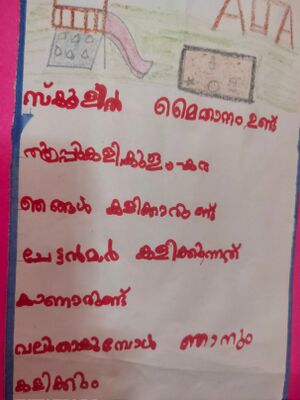 സ്കൂളിൽ മൈതാനം ഉണ്ട്
കുളം-കര
ഞങ്ങൾ കളിക്കാറുണ്ട്
ചേട്ടൻമാർ കളിക്കുന്നത്
കാണാറുണ്ട്
വലുതാകുമ്പോൾ ഞാനും
കളിക്കും